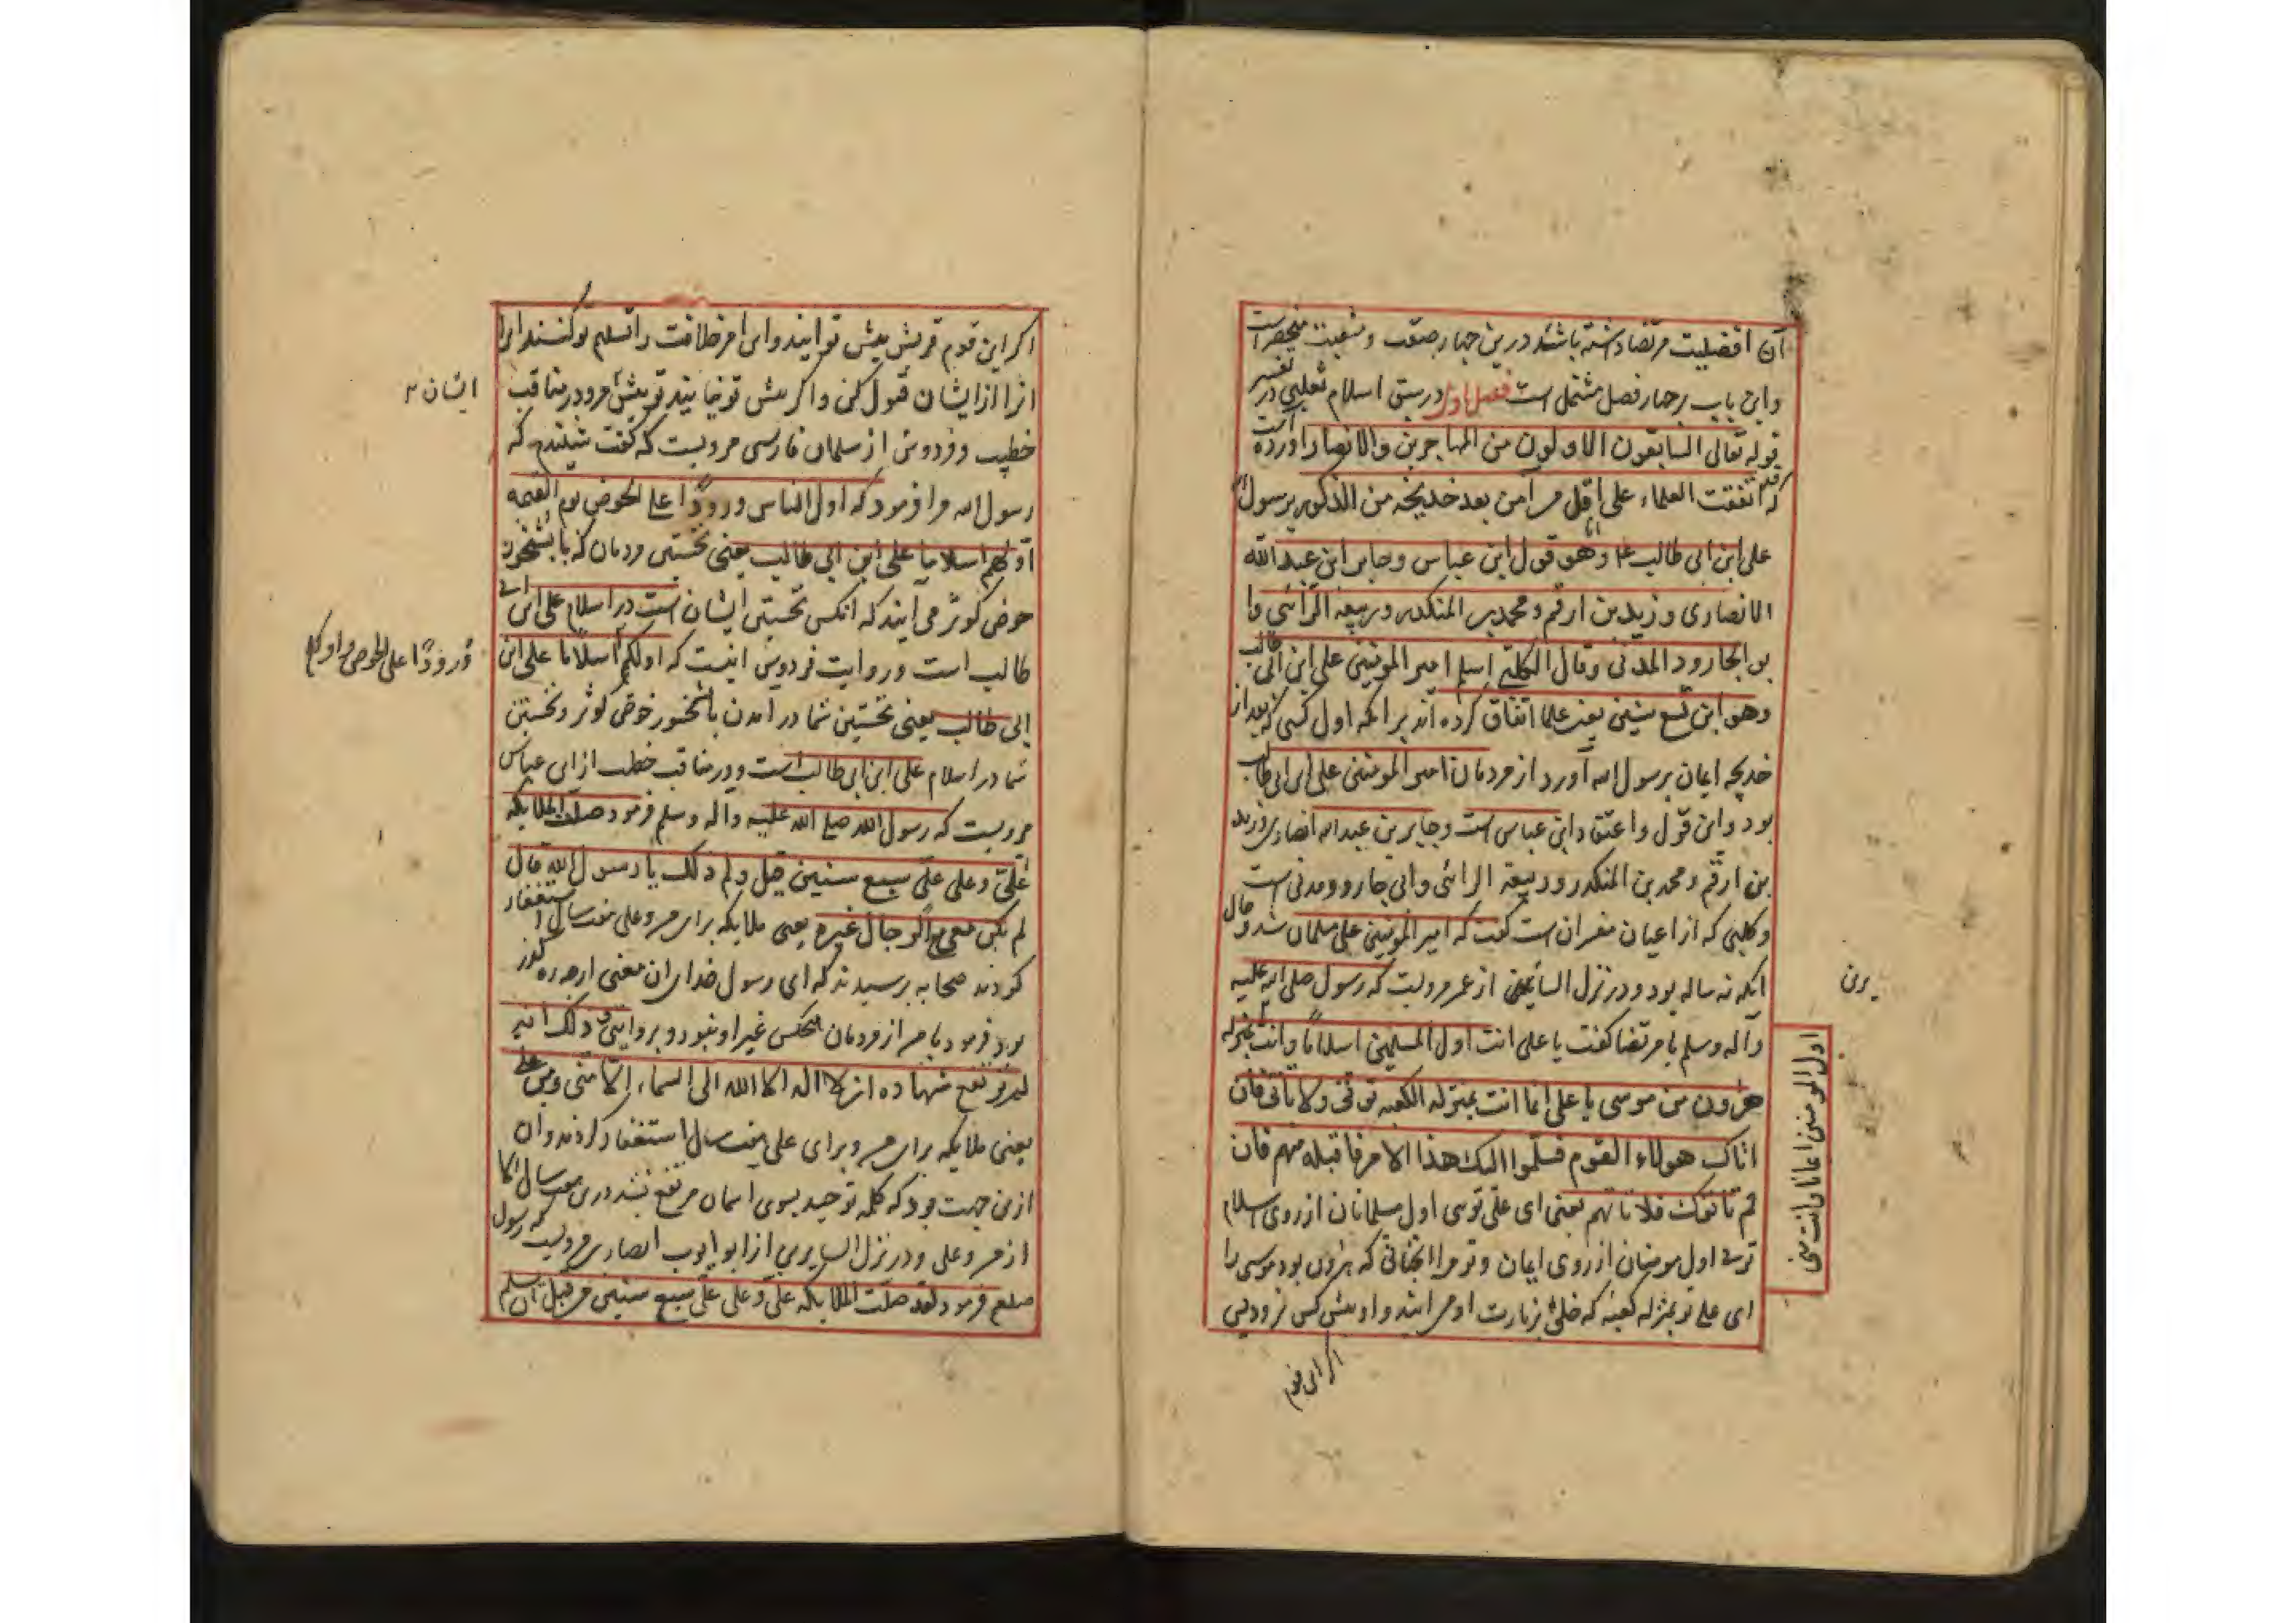 آن افضیلیت مرتضا داشته باشند درین چهار صفت و منقبت منحصر است
و این باب بر چهار فصل مشتمل است فصل اول در سبق اسلام ثعلبی در تفسیر
قوله تعالی السابقون الاولون من المهاجرین والانصار آورده است
که اتفقت العلماء علی اول من آمن بعد خدیجه من الذکور برسول الله
علی ابن ابی طالب وهو قول ابن عباس وجابر ابن عبد الله
الانصاری وزید بن ارقم ومحمد بن المنکدر وربیعه الرائی وا
بو الجارود المدنی وقال الکلبی اسلم امیر المومنین علی ابن ابی طالب
وهو ابن تسع سنین یعنی علما اتفاق کرده اند برانکه اول کسی که بعد از
خدیجه ایمان برسول الله آورد از مردمان امیر المومنین علی ابن ابی طالب
بود و این قول و اعتقاد ابن عباس است و جابر بن عبد الله انصاری و زید
بن ارقم و محمد بن المنکدر و ربیعه الرائی و ابی جارود مدنی است
و کلبی که از اعیان مفسران است گفت که امیر المومنین علی مسلمان شد و حال
انکه نه ساله بود و در نزل السائرین از عمر مرویست که رسول صلی الله علیه
وآله وسلم با مرتضا گفت یا علی انت اول المسلمین اسلاما وانت بمنزله
هرون من موسی یا علی انما انت بمنزله الکعبه توتی ولا تاتی فان
اتاک هولاء القوم فسلموا الیک هذا الامر فاقبله منهم فان
لم یاتوک فلا تاتهم یعنی ای علی توی اول مسلمانان از روی اسلام
توی اول مومنان از روی ایمان و تو مرا انچنانی که هرون بود موسی را
ای علی تو بمنزله کعبه که خلق بزیارت او می ایند و او پیش کس نرود پس
اول المومنین ایمانا وانت منی
اگر این قوم
اگر این قوم قریش پیش تو ایند و این امر خلافت را تسلیم تو کنند این را
انرا از ایشان قبول کن و اگر پیش تو نیایند تو پیش مرو و در مناقب
ایشان
خطیب و فردوس از سلمان فارسی مرویست که گفت شنیدم که
رسول الله مرا فرمود که اول الناس ورودا علی الحوض یوم القیمه
اولهم اسلاما علی ابن ابی طالب یعنی نخستین مردمان که با بشخور
حوض کوثر می آیند که انکس نخستین ایشان است در اسلام علی ابن ابی
طالب است و روایت فردوس اینست که اولکم اسلاما علی ابن
ورودا علی الحوض و اولکم
ابی طالب یعنی نخستین شما در امدن بابشخور حوض کوثر و نخستین
شما در اسلام علی ابن ابی طالب است و در مناقب خطیب از ابن عباس
مرویست که رسول الله صلی الله علیه وآله وسلم فرمود صلت الملایکه
علیّ وعلی علیّ سبع سنین قیل ولم ذلک یا رسول الله قال
لم یکن معی من الرجال غیره یعنی ملایکه برای من و علی هفت سال استغفار
کردند صحابه پرسیدند که ای رسول خدا این معنی از چه ره گذر
بود فرمود با من از مردمان هیچکس غیر او نبود و بروایتی و ذلک انه
لم ترتفع شهادة ان لا اله الا الله الی السماء الا منی ومن علی
یعنی ملایکه برای من و برای علی هفت سال استغفار کردند و ان
ازین جهت بود که کلمه توحید بسوی اسمان مرتفع نشد درین هفت سال الا
از من و علی و در نزل السایرین از ابو ایوب انصاری مرویست که رسول
صلعم فرمود لقد صلت الملایکه علیّ وعلی علیّ سبع سنین من قبل ان یسلم